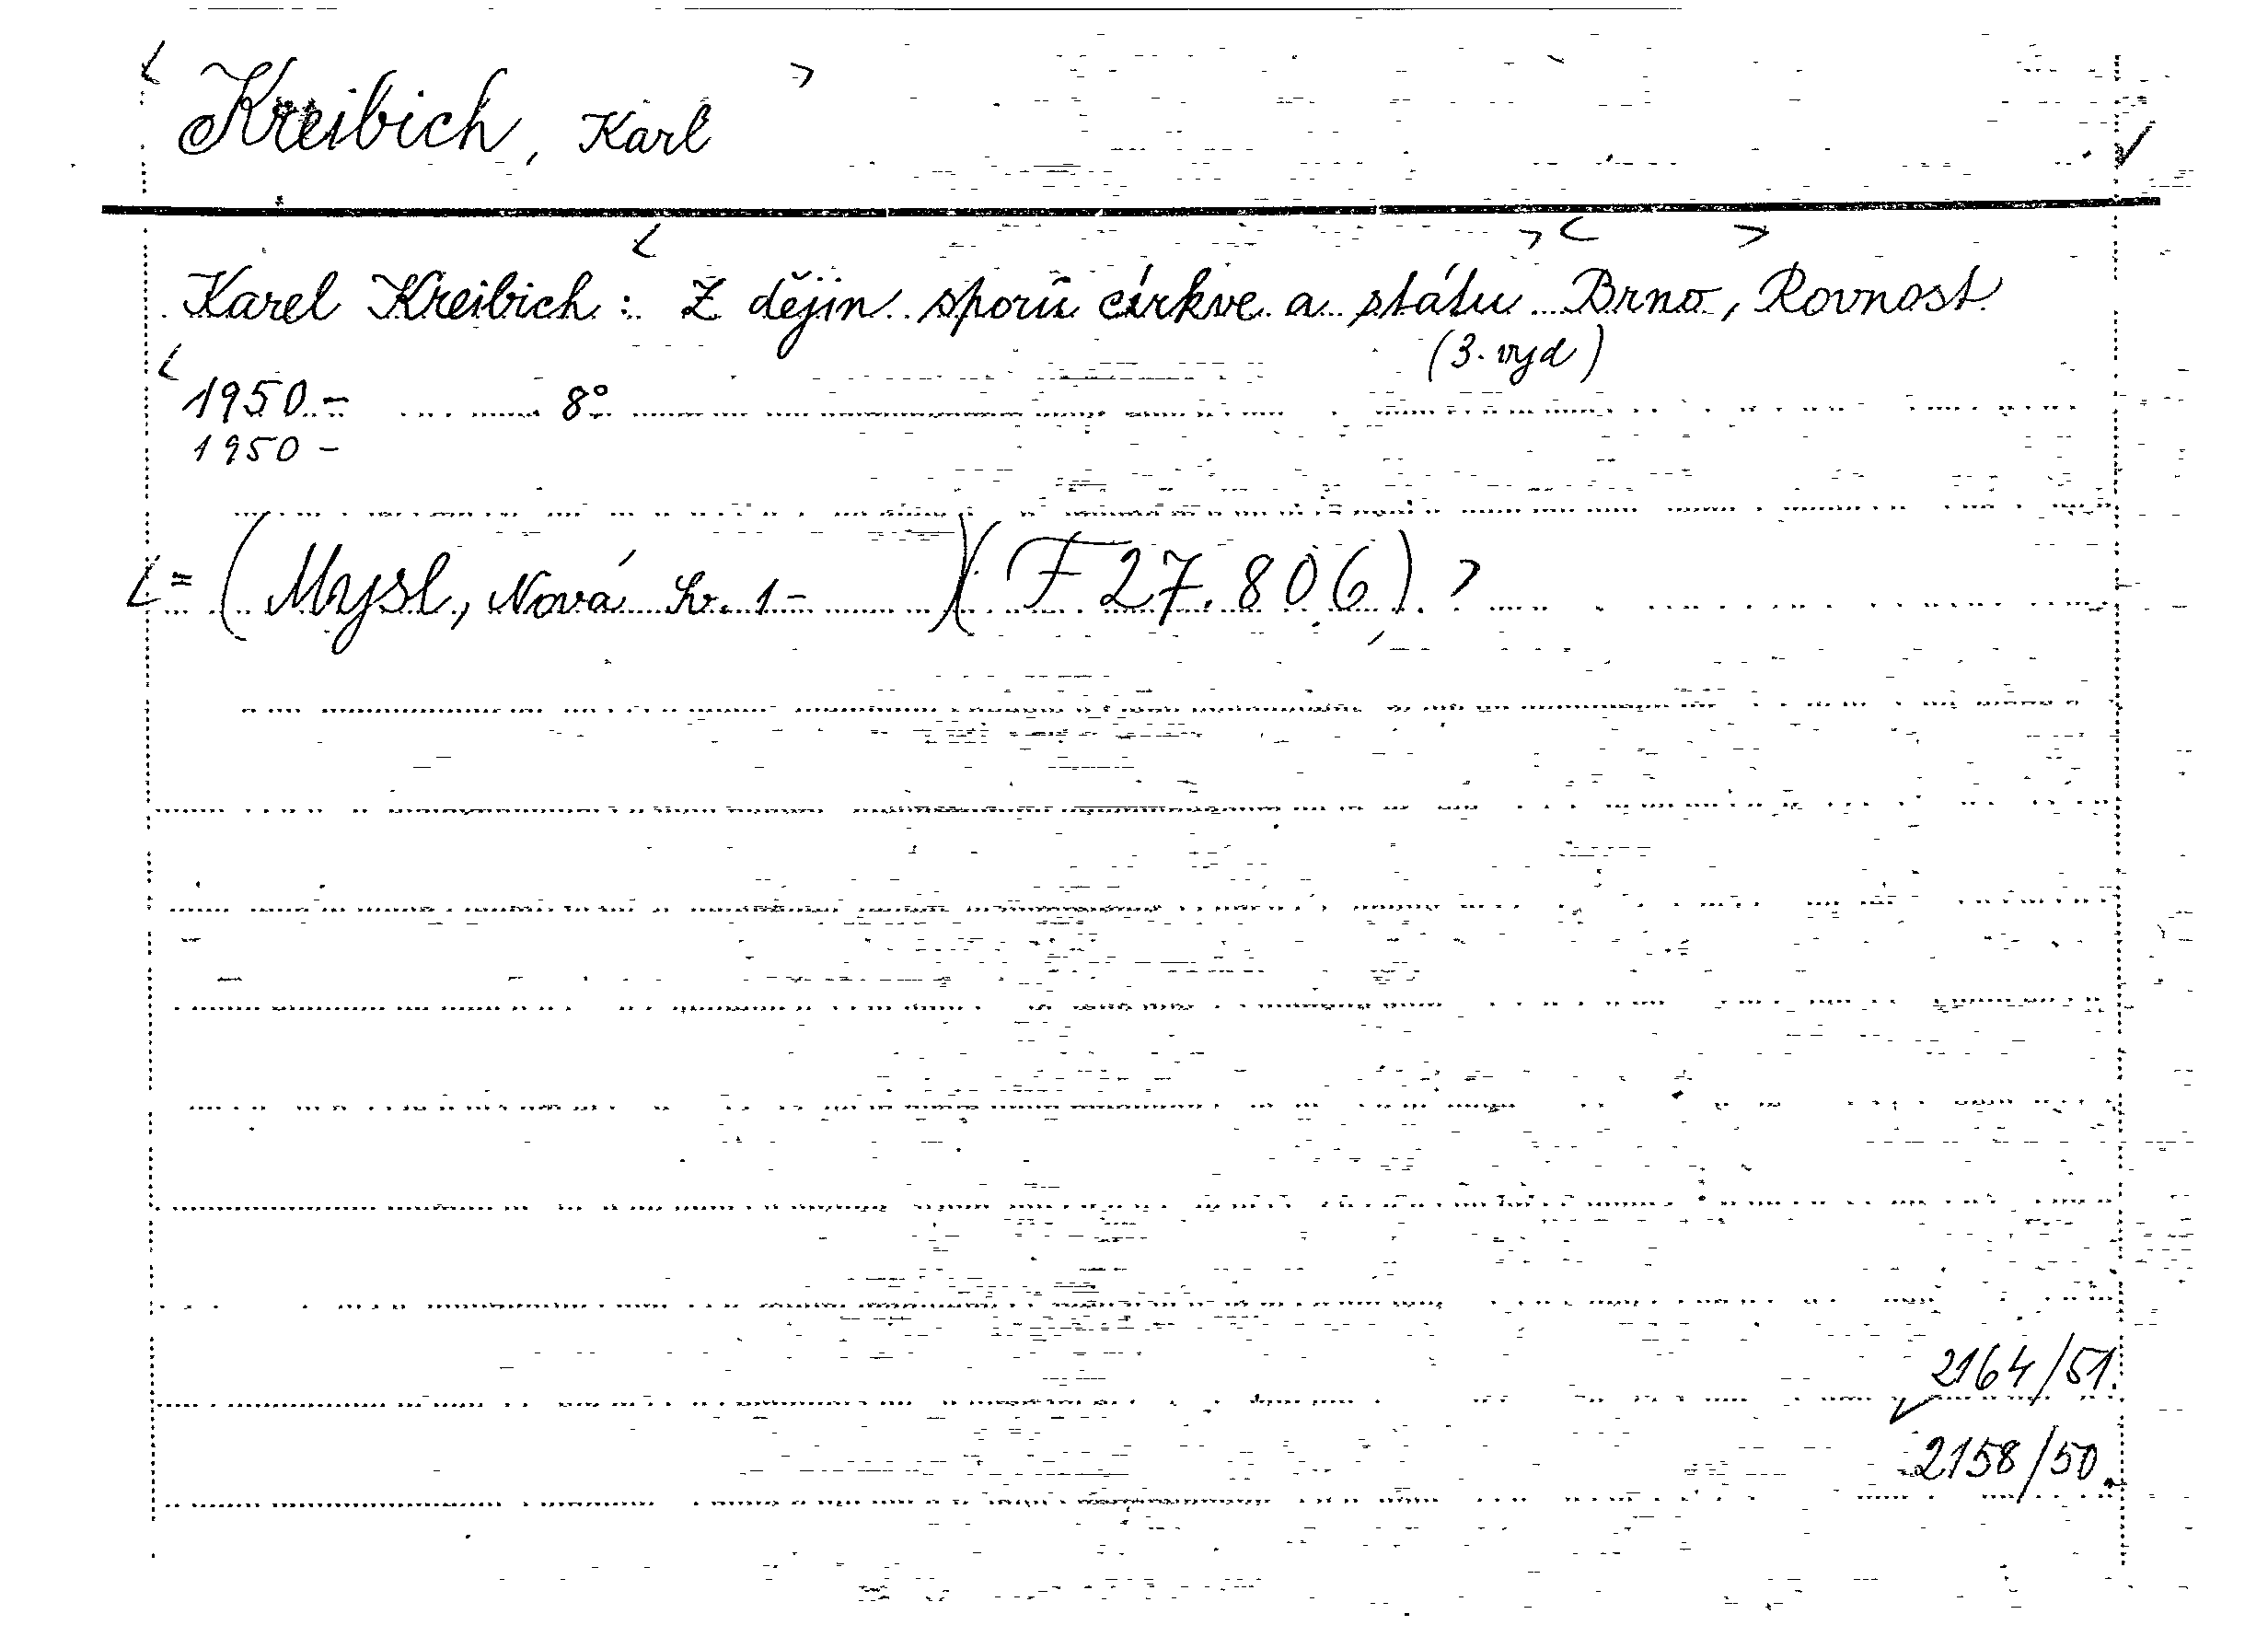 Kreibich, Karl
Karel Kreibich: Z dějin sporů církve a státu Brno, Rovnost
(3. vyd)
1950.- 8°
1950 -
= (Mysl, Nová Sv. 1- )(F 27.806).
2164/51.
2158/50.